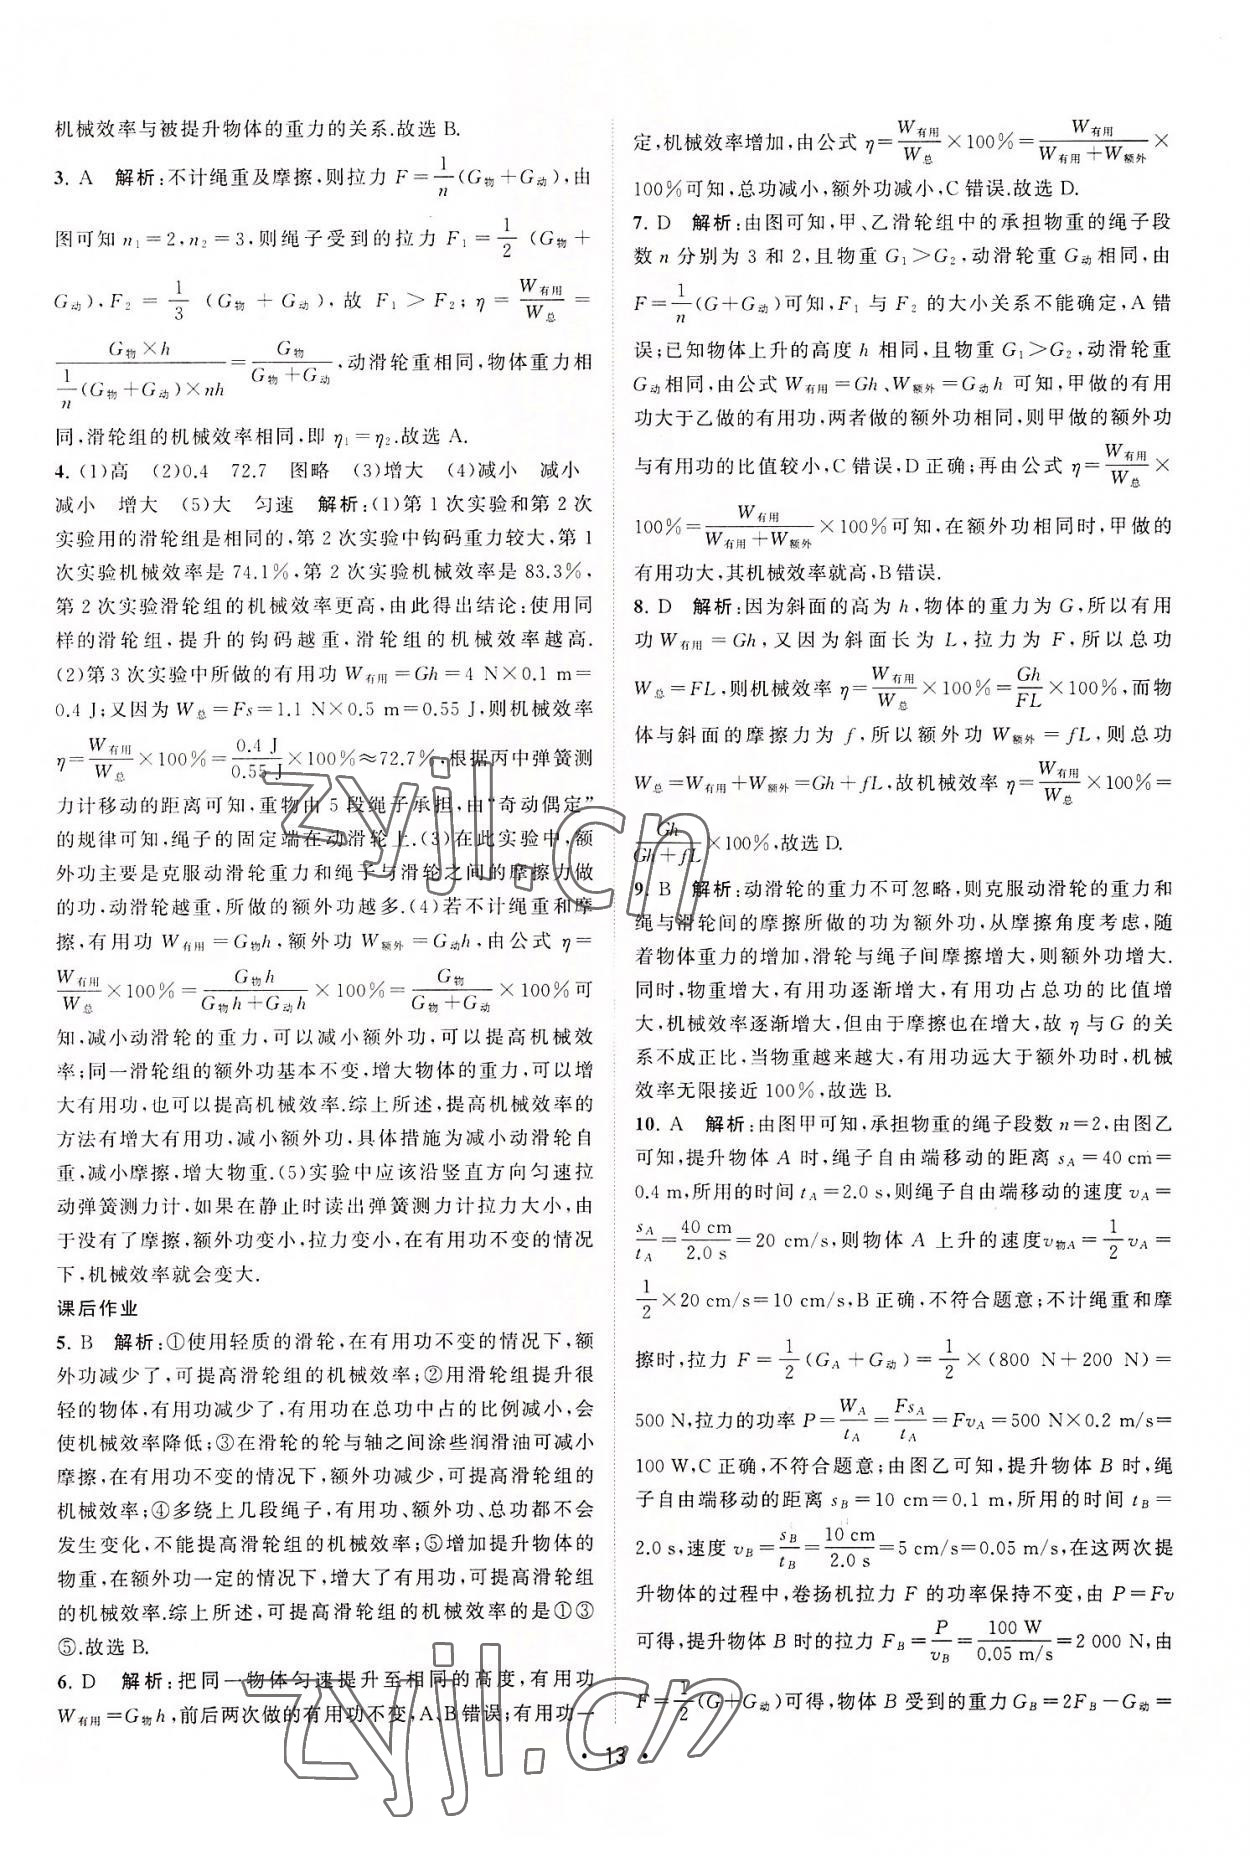 机械效率与被提升物体的重力的关系.故选 B.
3. A 解析:不计绳重及摩擦,则拉力 F=1/n(G物+G动),由
图可知 n₁=2,n₂=3,则绳子受到的拉力 F₁=1/2(G物+
G动),F₂=1/3(G物+G动),故 F₁>F₂;η=W有用/W总=
(G物×h)/(1/n(G物+G动)×nh)=G物/(G物+G动),动滑轮重相同,物体重力相
同,滑轮组的机械效率相同,即 η₁=η₂.故选 A.
4. (1)高 (2)0.4 72.7 图略 (3)增大 (4)减小 减小
减小 增大 (5)大 匀速 解析:(1)第 1 次实验和第 2 次
实验用的滑轮组是相同的,第 2 次实验中钩码重力较大,第 1
次实验机械效率是 74.1%,第 2 次实验机械效率是 83.3%,
第 2 次实验滑轮组的机械效率更高,由此得出结论:使用同
样的滑轮组,提升的钩码越重,滑轮组的机械效率越高.
(2)第 3 次实验中所做的有用功 W有用=Gh=4 N×0.1 m=
0.4 J;又因为 W总=Fs=1.1 N×0.5 m=0.55 J,则机械效率
η=W有用/W总×100%=0.4 J/0.55 J×100%≈72.7%.根据丙中弹簧测
力计移动的距离可知,重物由 5 段绳子承担,由“奇动偶定”
的规律可知,绳子的固定端在动滑轮上.(3)在此实验中,额
外功主要是克服动滑轮重力和绳子与滑轮之间的摩擦力做
的功,动滑轮越重,所做的额外功越多.(4)若不计绳重和摩
擦,有用功 W有用=G物h,额外功 W额外=G动h,由公式 η=
W有用/W总×100%=G物h/(G物h+G动h)×100%=G物/(G物+G动)×100%可
知,减小动滑轮的重力,可以减小额外功,可以提高机械效
率;同一滑轮组的额外功基本不变,增大物体的重力,可以增
大有用功,可以提高机械效率.综上所述,提高机械效率的
方法有增大有用功,减小额外功,具体措施为减小动滑轮自
重,减小摩擦,增大物重.(5)实验中应该沿竖直方向匀速拉
动弹簧测力计,如果在静止时读出弹簧测力计拉力大小,由
于没有了摩擦,额外功变小,拉力变小,在有用功不变的情况
下,机械效率就会变大.
课后作业
5. B 解析:①使用轻质的滑轮,在有用功不变的情况下,额
外功减少了,可提高滑轮组的机械效率;②用滑轮组提升很
轻的物体,有用功减少了,有用功在总功中占的比例减小,会
使机械效率降低;③在滑轮的轮与轴之间涂些润滑油可减小
摩擦,在有用功不变的情况下,额外功减少,可提高滑轮组的
机械效率;④多绕上几段绳子,有用功、额外功、总功都不会
发生变化,不能提高滑轮组的机械效率;⑤增加提升物体的
物重,在额外功一定的情况下,增大了有用功,可提高滑轮组
的机械效率.综上所述,可提高滑轮组的机械效率的是①③
⑤.故选 B.
6. D 解析:把同一物体匀速提升至相同的高度,有用功
W有用=G物h,前后两次做的有用功不变,A、B 错误;有用功一
定,机械效率增加,由公式 η=W有用/W总×100%=W有用/(W有用+W额外)×
100%可知,总功减小,额外功减小,C 错误.故选 D.
7. D 解析:由图可知,甲、乙滑轮组中的承担物重的绳子段
数 n 分别为 3 和 2,且物重 G₁>G₂,动滑轮重 G动相同,由
F=1/n(G+G动)可知,F₁ 与 F₂ 的大小关系不能确定,A 错
误;已知物体上升的高度 h 相同,且物重 G₁>G₂,动滑轮重
G动相同,由公式 W有用=Gh、W额外=G动h 可知,甲做的有用
功大于乙做的有用功,两者做的额外功相同,则甲做的额外功
与有用功的比值较小,C 错误,D 正确;再由公式 η=W有用/W总×
100%=W有用/(W有用+W额外)×100%可知,在额外功相同时,甲做的
有用功大,其机械效率就高,B 错误.
8. D 解析:因为斜面的高为 h,物体的重力为 G,所以有用
功 W有用=Gh,又因为斜面长为 L,拉力为 F,所以总功
W总=FL,则机械效率 η=W有用/W总×100%=Gh/FL×100%,而物
体与斜面的摩擦力为 f,所以额外功 W额外=fL,则总功
W总=W有用+W额外=Gh+fL,故机械效率 η=W有用/W总×100%=
Gh/(Gh+fL)×100%,故选 D.
9. B 解析:动滑轮的重力不可忽略,则克服动滑轮的重力和
绳与滑轮间的摩擦所做的功为额外功,从摩擦角度考虑,随
着物体重力的增加,滑轮与绳子间摩擦增大,额外功增大.
同时,物重增大,有用功逐渐增大,有用功占总功的比值增
大,机械效率逐渐增大,但由于摩擦也在增大,故 η 与 G 的关
系不成正比,当物重越来越大,有用功远大于额外功时,机械
效率无限接近 100%,故选 B.
10. A 解析:由图甲可知,承担物重的绳子段数 n=2,由图乙
可知,提升物体 A 时,绳子自由端移动的距离 sA=40 cm=
0.4 m,所用的时间 tA=2.0 s,则绳子自由端移动的速度 vA=
sA/tA=40 cm/2.0 s=20 cm/s,则物体 A 上升的速度v物A=1/2 vA=
1/2×20 cm/s=10 cm/s,B 正确,不符合题意;不计绳重和摩
擦时,拉力 F=1/2(GA+G动)=1/2×(800 N+200 N)=
500 N,拉力的功率 P=WA/tA=FsA/tA=FvA=500 N×0.2 m/s=
100 W,C 正确,不符合题意;由图乙可知,提升物体 B 时,绳
子自由端移动的距离 sB=10 cm=0.1 m,所用的时间 tB=
2.0 s,速度 vB=sB/tB=10 cm/2.0 s=5 cm/s=0.05 m/s,在这两次提
升物体的过程中,卷扬机拉力 F 的功率保持不变,由 P=Fv
可得,提升物体 B 时的拉力 FB=P/vB=100 W/0.05 m/s=2 000 N,由
F=1/2(G+G动)可得,物体 B 受到的重力 GB=2FB-G动=
• 13 •
zyjl.cn
zyjl.cn